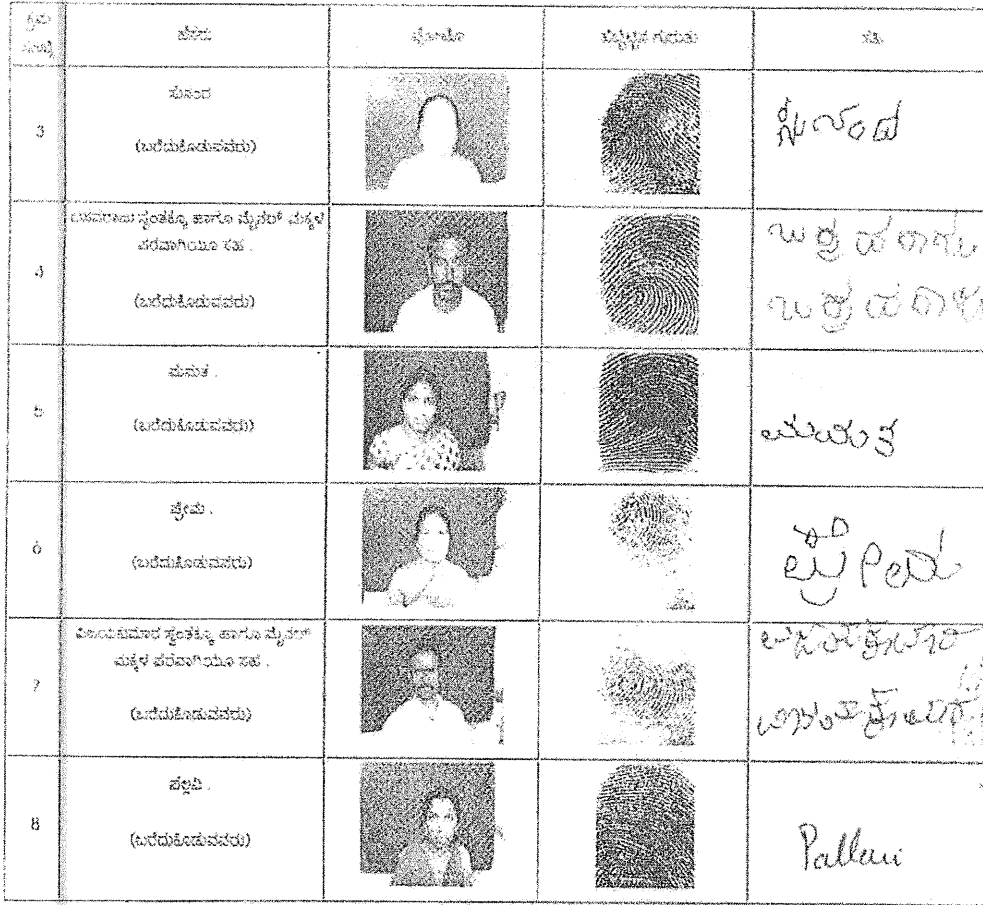 ಕ್ರಮ ಸಂಖ್ಯೆ ಹೆಸರು ಫೋಟೊ ಹೆಬ್ಬೆಟ್ಟಿನ ಗುರುತು ಸಹಿ
3 ಸುನಂದ
(ಬರೆದುಕೊಡುವವರು)
ಸುನಂದ
4 ಬಸವರಾಜು ಸ್ವಂತಕ್ಕೂ ಹಾಗೂ ಮೈನರ್ ಮಕ್ಕಳ
ಪರವಾಗಿಯೂ ಸಹ .
(ಬರೆದುಕೊಡುವವರು)
5 ಮಮತ .
(ಬರೆದುಕೊಡುವವರು)
ಮಮತ
6 ಪ್ರೇಮ .
(ಬರೆದುಕೊಡುವವರು)
ಪ್ರೇಮ
7 ವಿಜಯಕುಮಾರ ಸ್ವಂತಕ್ಕೂ ಹಾಗೂ ಮೈನರ್
ಮಕ್ಕಳ ಪರವಾಗಿಯೂ ಸಹ .
(ಬರೆದುಕೊಡುವವರು)
8 ಪಲ್ಲವಿ .
(ಬರೆದುಕೊಡುವವರು)
Pallavi